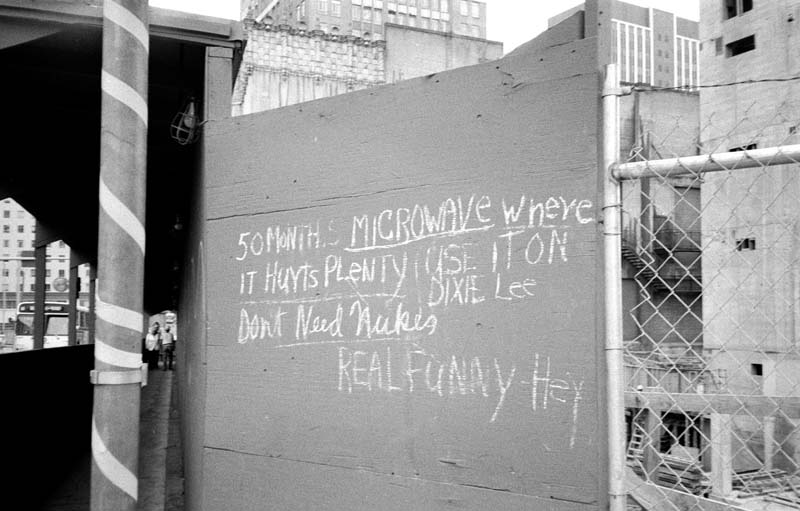 50 MONTHS MICROWAVE where
IT HUrTs PLENTY USE IT ON
DIXIE Lee
Don't Need Nukes
REAL FUNNY - Hey